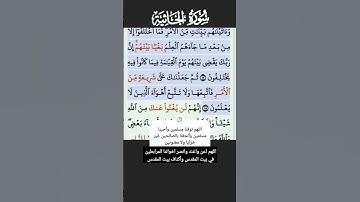 سُورَةُ الجَاثِيَةِ
وَءَاتَيْنَٰهُم بَيِّنَٰتٍ مِّنَ ٱلْأَمْرِ فَمَا ٱخْتَلَفُوٓا۟ إِلَّا
مِنۢ بَعْدِ مَا جَآءَهُمُ ٱلْعِلْمُ بَغْيًۢا بَيْنَهُمْ إِنَّ
رَبَّكَ يَقْضِى بَيْنَهُمْ يَوْمَ ٱلْقِيَٰمَةِ فِيمَا كَانُوا۟ فِيهِ
يَخْتَلِفُونَ ثُمَّ جَعَلْنَٰكَ عَلَىٰ شَرِيعَةٍ مِّنَ
ٱلْأَمْرِ فَٱتَّبِعْهَا وَلَا تَتَّبِعْ أَهْوَآءَ ٱلَّذِينَ لَا
يَعْلَمُونَ إِنَّهُمْ لَن يُغْنُوا۟ عَنكَ مِنَ
اللهم توفنا مسلمين وأحينا
مسلمين وألحقنا بالصالحين غير
خزايا ولا مفتونين
اللهم أعن وأغث وانصر اخواننا المرابطين
في بيت المقدس وأكناف بيت المقدس